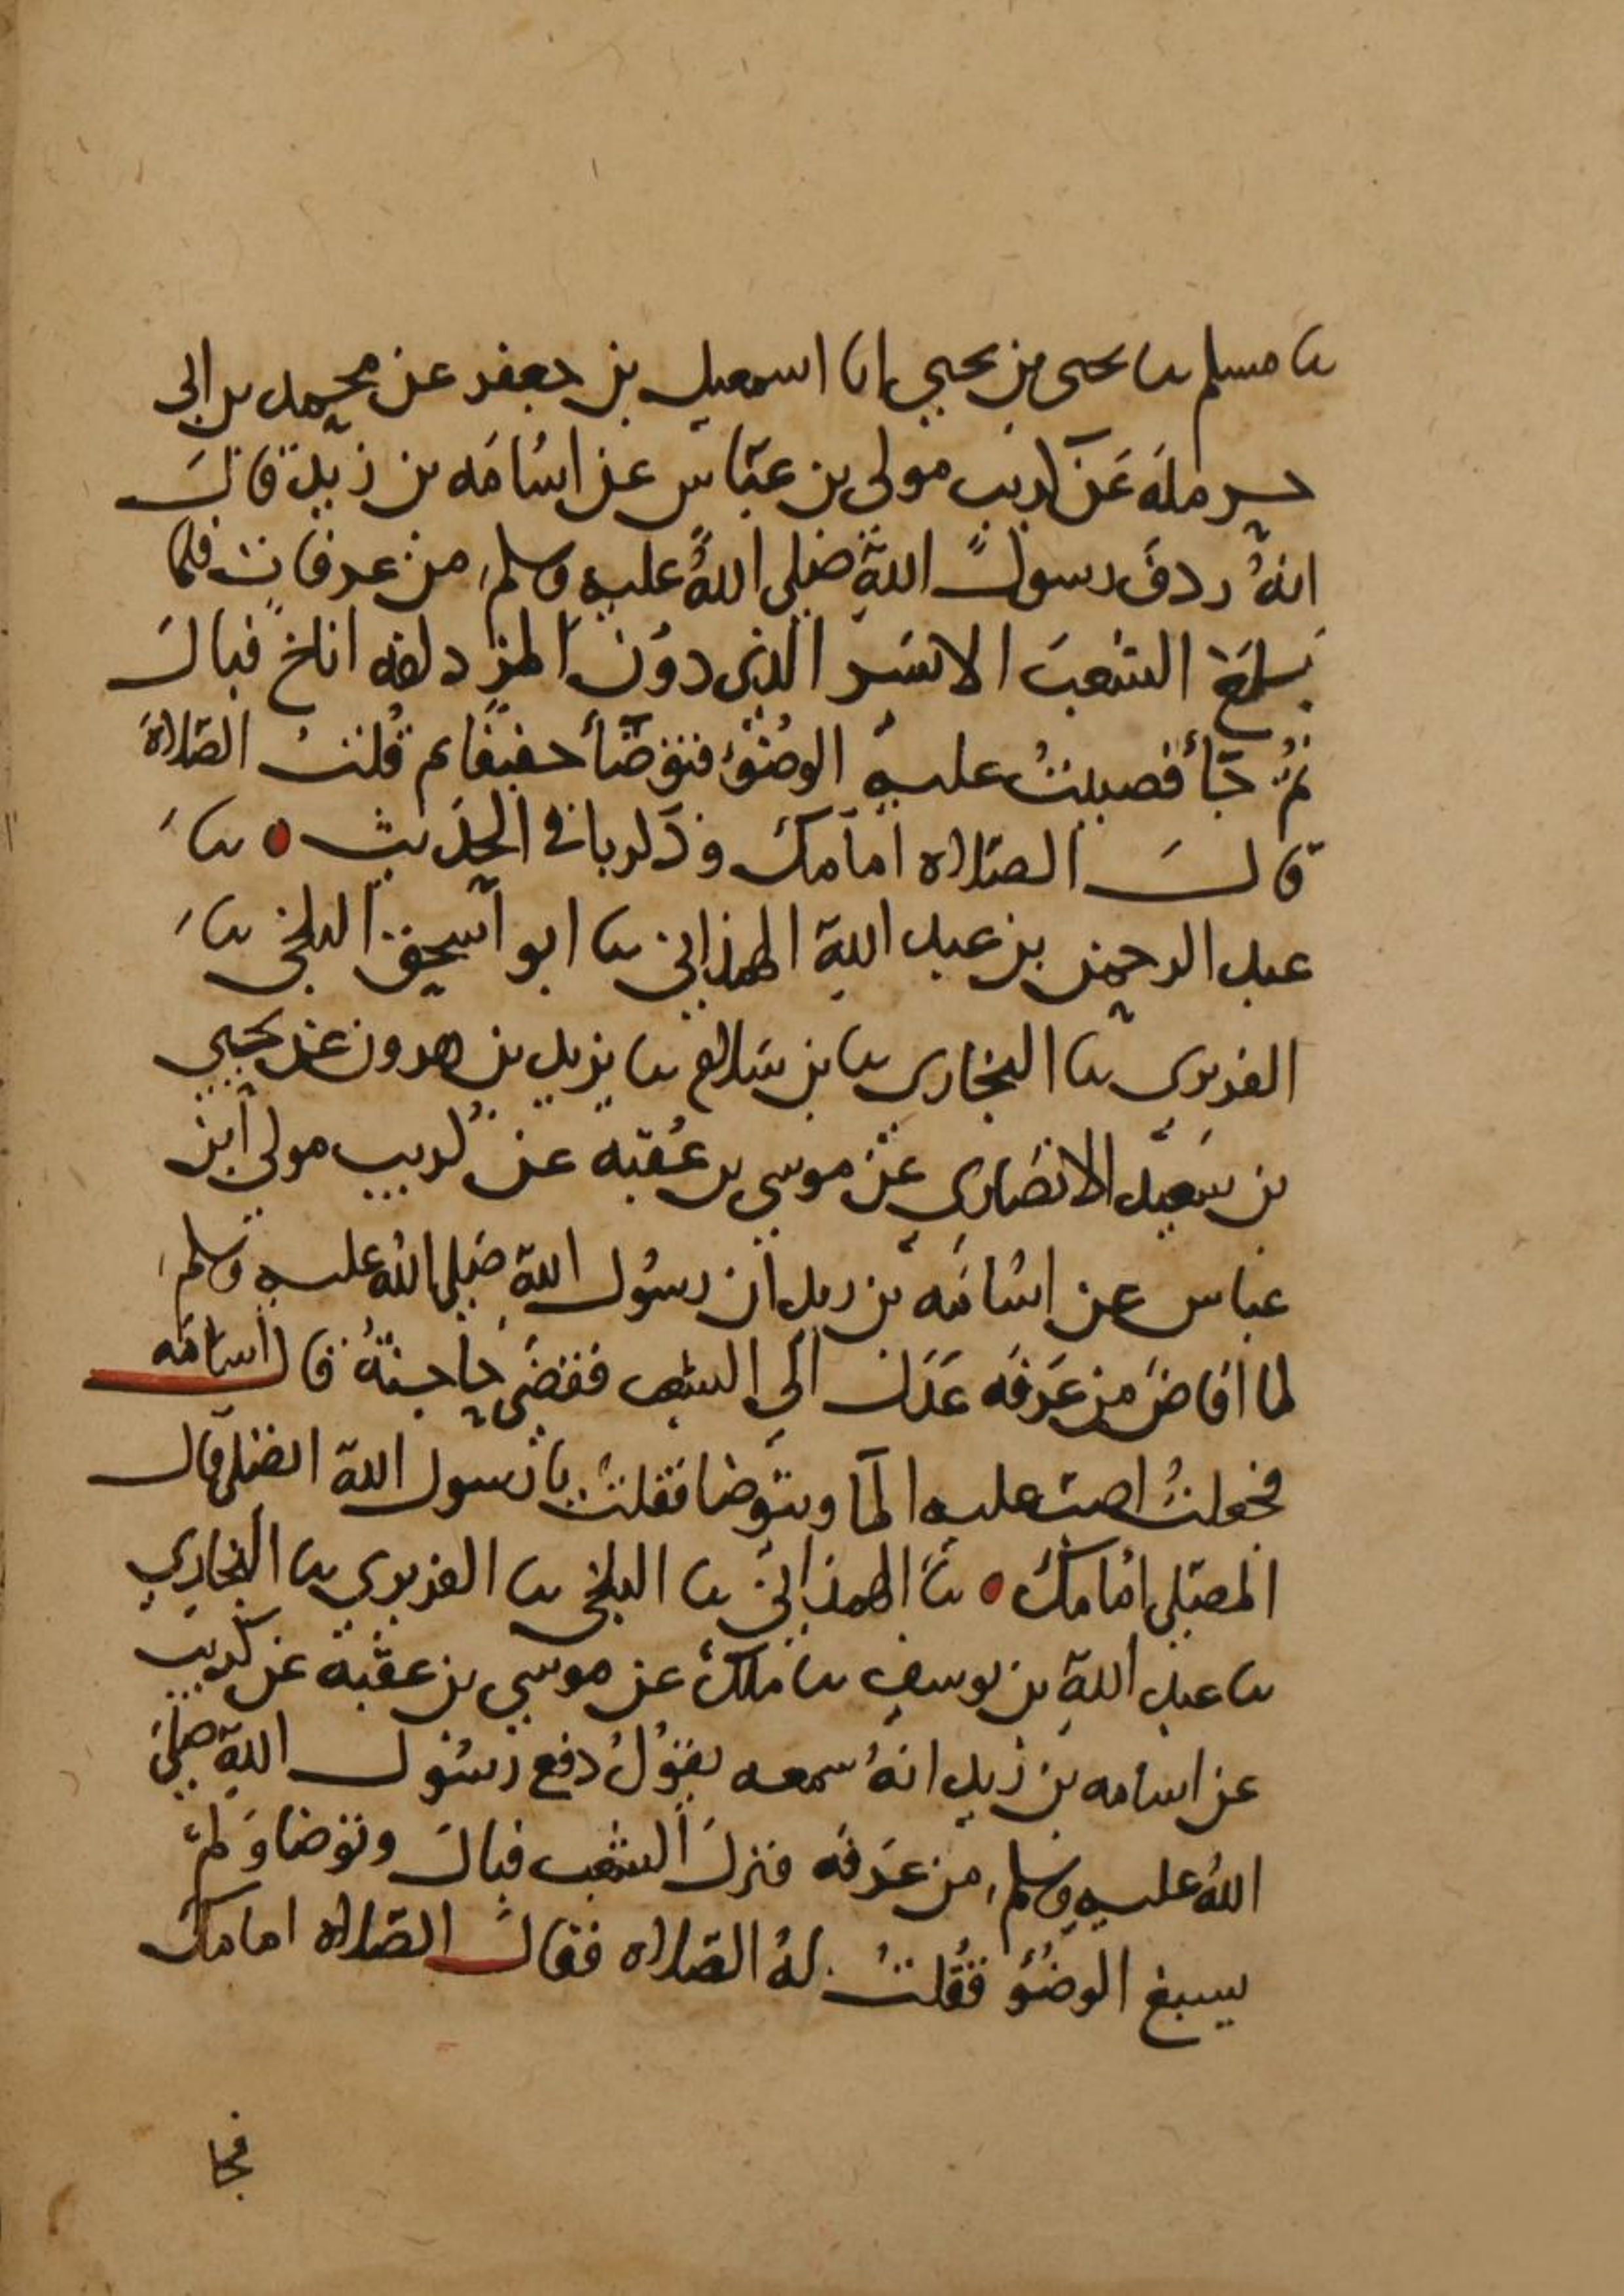 ثنا مسلم ثنا يحيى بن يحيي انا اسمعيل بن جعفر عن محمد بن ابي
حرملة عن كريب مولى بن عباس عن اسامه بن زيد قال
انهُ ردف رسول الله صلى اللهُ عليه وسلم من عرفات فلما
بلغ الشعبَ الايسر الذي دون المزدلفه اناخ فبال
ثُم جاء فصببتُ عليه الوضوُء فتوضأ خفيفا ثم قُلتُ الصّلاة
قال الصّلاه امامك وذكر باقي الحديث ثنا
عبد الرحمن بن عبد الله الهمذاني ثنا ابو اسحق البلخي ثنا
الفربري ثنا البخاري ثنا بن سلام ثنا يزيد بن هرون عن يحيي
بن سعيد الانصاري عن موسي بن عُقبه عن كُريب مولى ابن
عباس عن اسُامه بن زيد ان رسُول الله صلى اللهُ عليه وسلم
لما افاضَ من عَرفَه عَدَل الي الشعب فقضَي حاجتهُ قال اسامَه
فجعلتُ اصبّ عليه الما ويتوضا فقلتُ يا رسول الله اتصلي قال
المصلي امامك ثنا الهمذاني ثنا البلخي ثنا الفربري ثنا البخاري
ثنا عبد الله بن يوسف ثنا ملك عن موسي بن عقبة عن كريب
عن اسامه بن زيد انهُ سمعه يقوُلُ دفع رسُول الله صلى
اللهُ عليه وسلم من عرفه فنزلَ الشعب فبالَ وتوضا وَلم
يسبغ الوضُوُ فقُلتُ لهُ الصّلاه فقال الصّلاه امامك
فجا